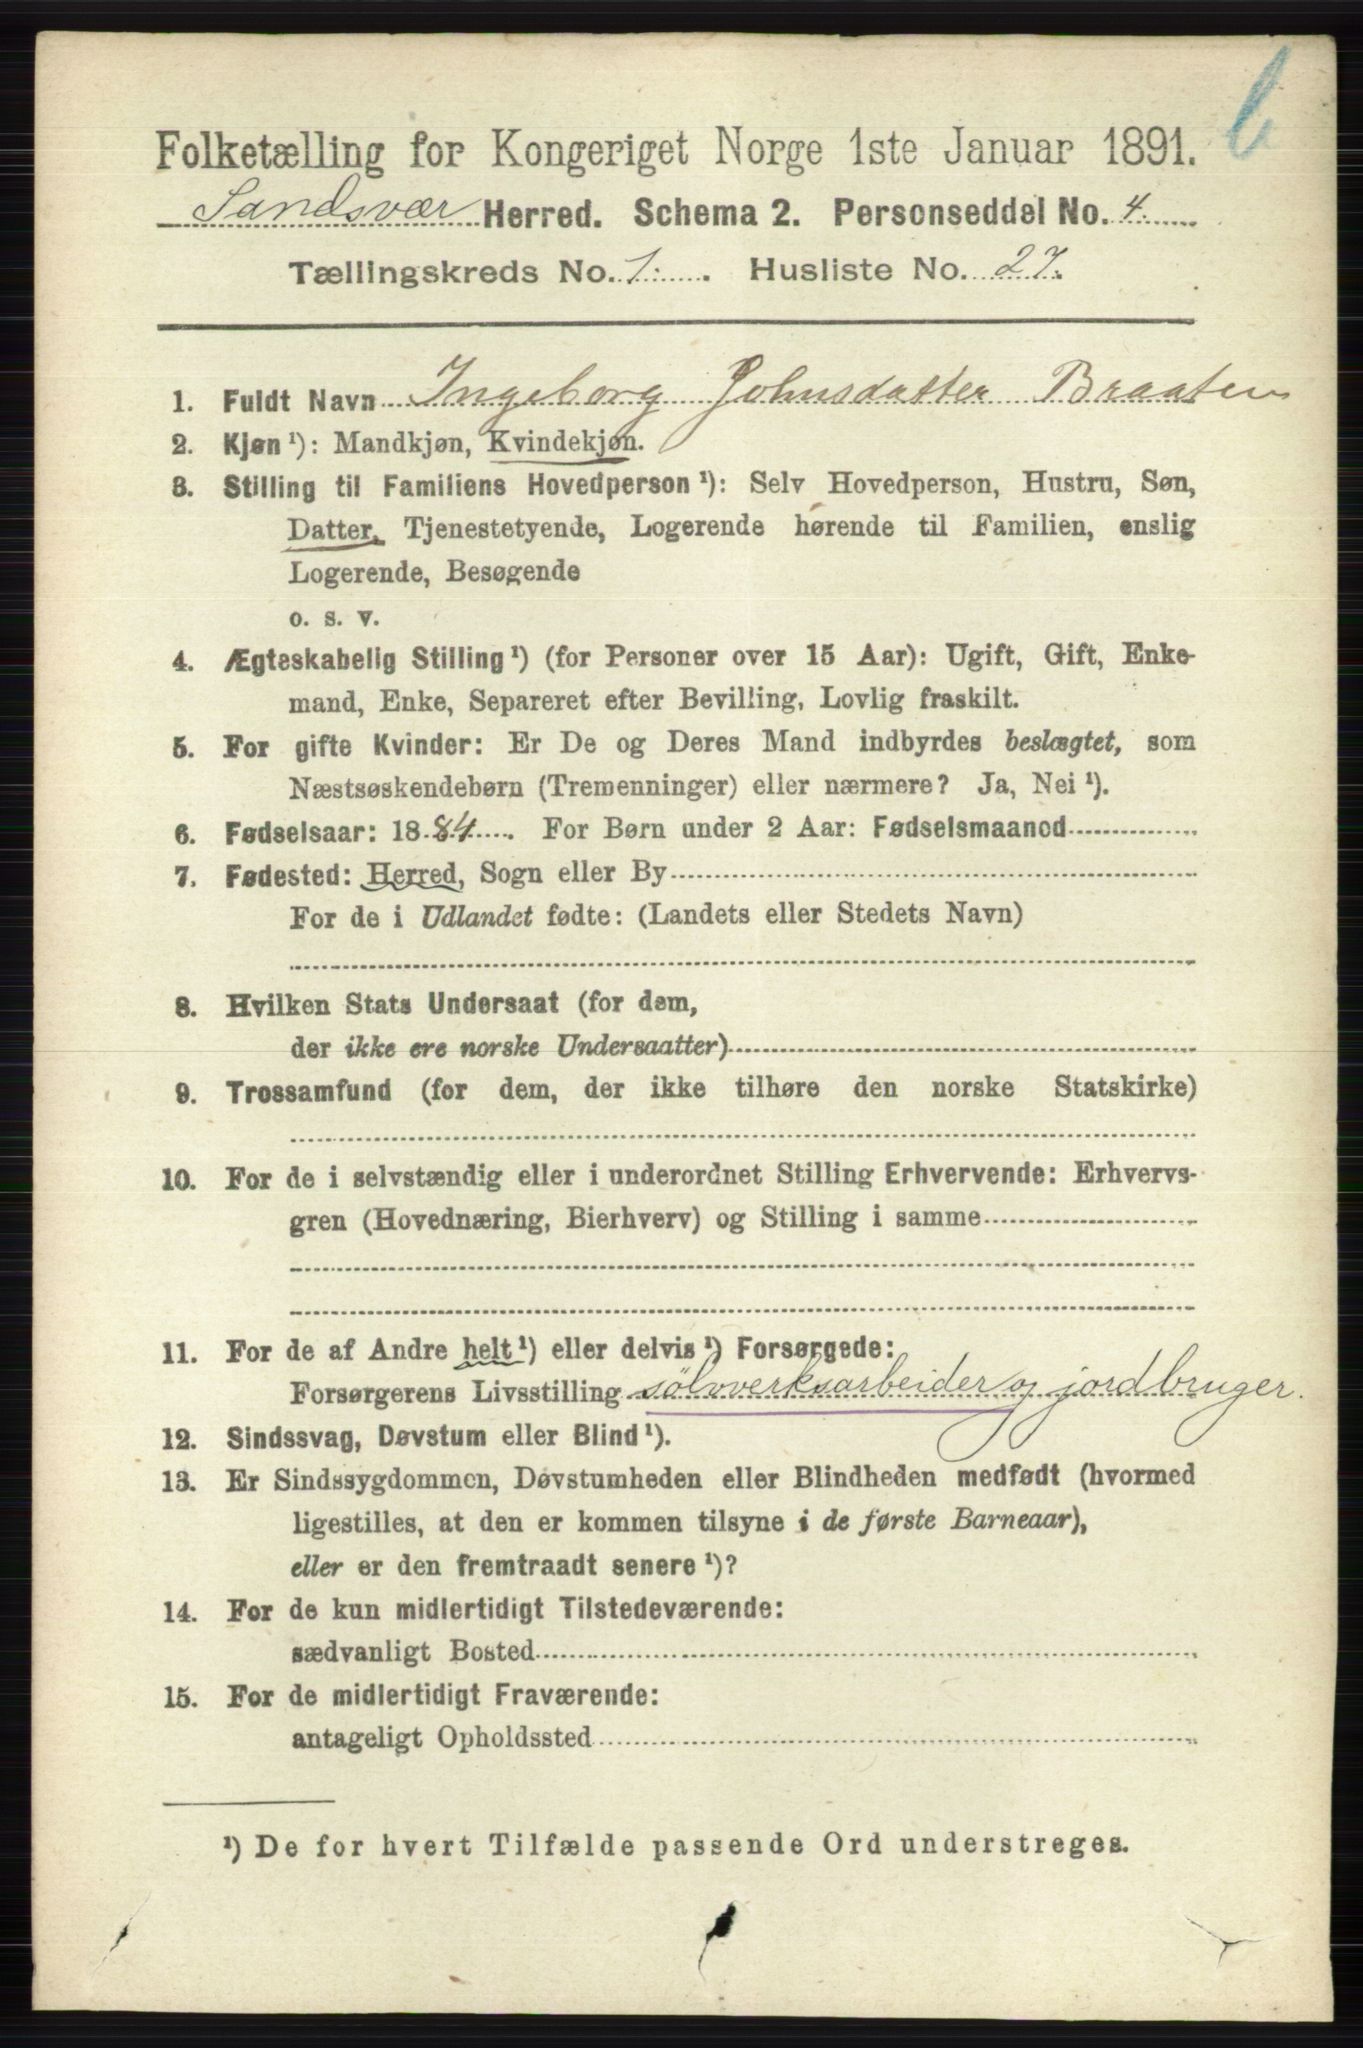 b
Folketælling for Kongeriget Norge 1ste Januar 1891.
Sandsvær Herred. Schema 2. Personseddel No. 4.
Tællingskreds No. 1. Husliste No. 27.
1. Fuldt Navn Ingeborg Johnsdatter Braaten
2. Kjøn ¹): Mandkjøn, Kvindekjøn.
3. Stilling til Familiens Hovedperson ¹): Selv Hovedperson, Hustru, Søn,
Datter, Tjenestetyende, Logerende hørende til Familien, enslig
Logerende, Besøgende
o. s. v.
4. Ægteskabelig Stilling ¹) (for Personer over 15 Aar): Ugift, Gift, Enke-
mand, Enke, Separeret efter Bevilling, Lovlig fraskilt.
5. For gifte Kvinder: Er De og Deres Mand indbyrdes beslægtet, som
Næstsøskendebørn (Tremenninger) eller nærmere? Ja, Nei ¹).
6. Fødselsaar: 1884. For Børn under 2 Aar: Fødselsmaaned
7. Fødested: Herred, Sogn eller By
For de i Udlandet fødte: (Landets eller Stedets Navn)
8. Hvilken Stats Undersaat (for dem,
der ikke ere norske Undersaatter)
9. Trossamfund (for dem, der ikke tilhøre den norske Statskirke)
10. For de i selvstændig eller i underordnet Stilling Erhvervende: Erhvervs-
gren (Hovednæring, Bierhverv) og Stilling i samme
11. For de af Andre helt ¹) eller delvis ¹) Forsørgede:
Forsørgerens Livsstilling sölvverksarbeider og jordbruger.
12. Sindssvag, Døvstum eller Blind ¹).
13. Er Sindssygdommen, Døvstumheden eller Blindheden medfødt (hvormed
ligestilles, at den er kommen tilsyne i de første Barneaar),
eller er den fremtraadt senere ¹)?
14. For de kun midlertidigt Tilstedeværende:
sædvanligt Bosted
15. For de midlertidigt Fraværende:
antageligt Opholdssted
¹) De for hvert Tilfælde passende Ord understreges.